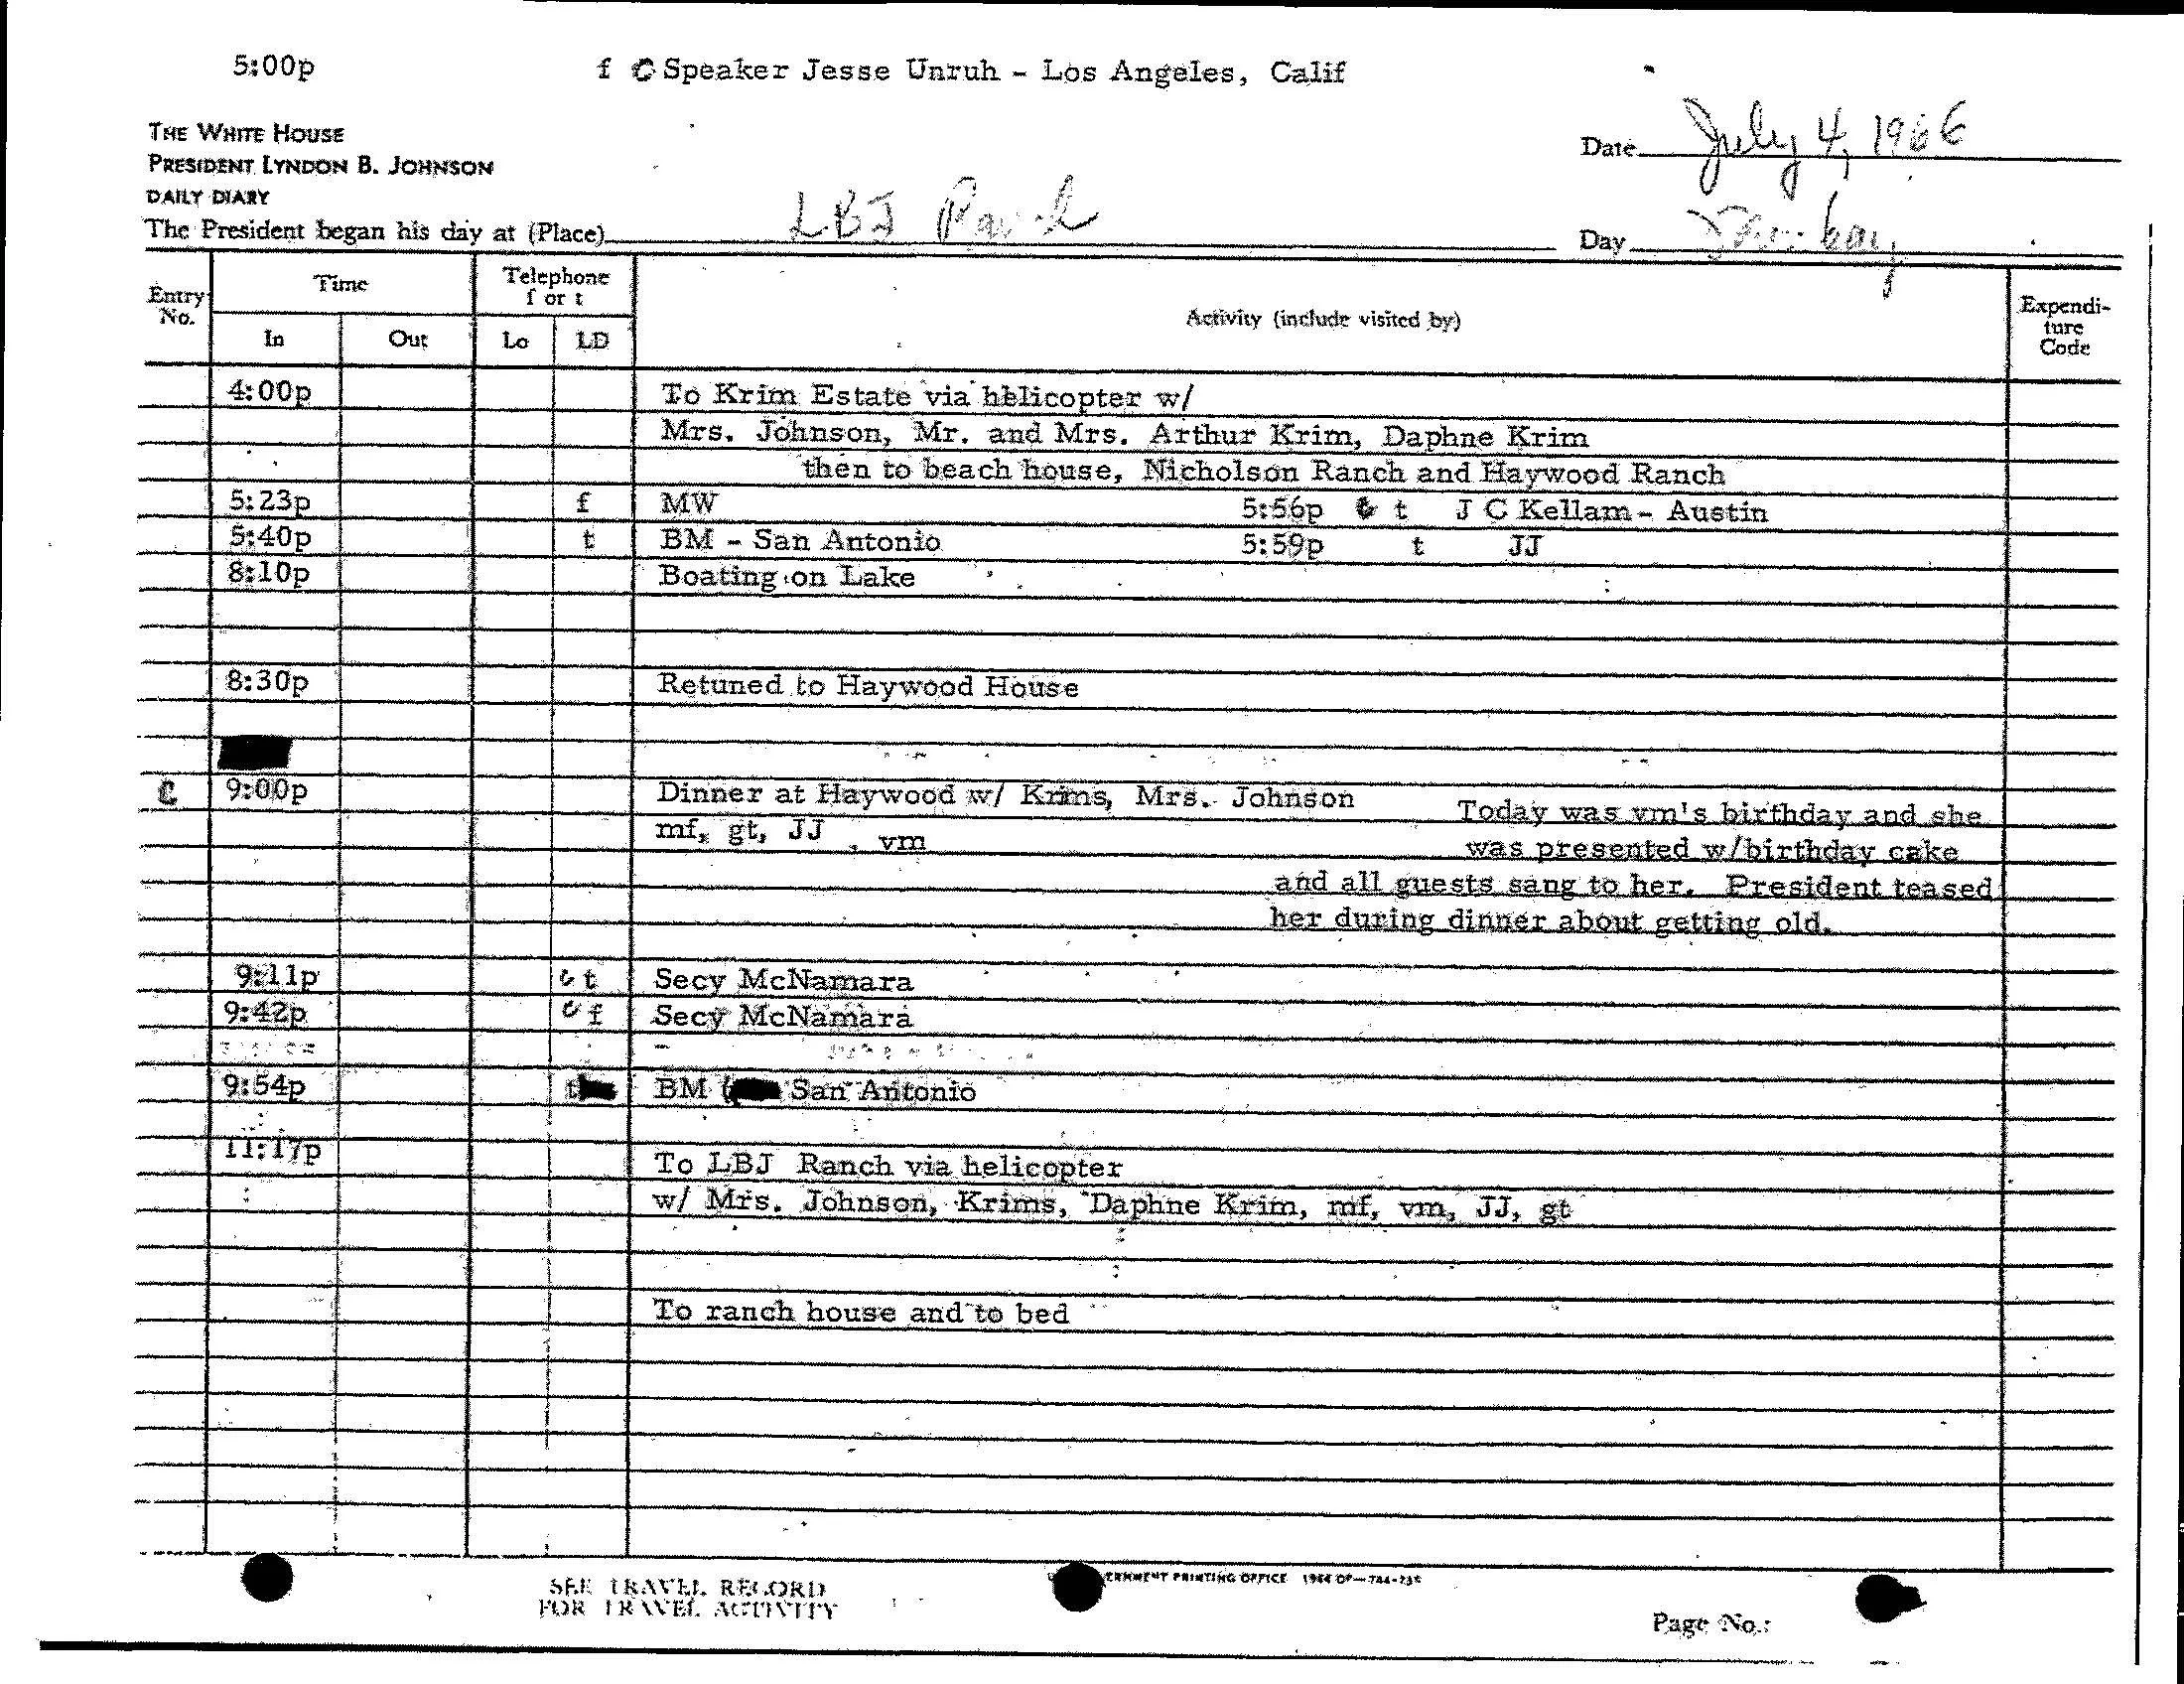 5:00p f C Speaker Jesse Unruh - Los Angeles, Calif
THE WHITE HOUSE
PRESIDENT LYNDON B. JOHNSON
DAILY DIARY
Date July 4, 1966
The President began his day at (Place) LBJ Ranch
Day
Entry No. Time Telephone f or t Activity (include visited by) Expendi-ture Code
In Out Lo LD
4:00p To Krim Estate via helicopter w/
Mrs. Johnson, Mr. and Mrs. Arthur Krim, Daphne Krim
then to beach house, Nicholson Ranch and Haywood Ranch
5:23p f MW 5:56p t J C Kellam - Austin
5:40p t BM - San Antonio 5:59p t JJ
8:10p Boating on Lake
8:30p Retuned to Haywood House
C 9:00p Dinner at Haywood w/ Krims, Mrs. Johnson
mf, gt, JJ , vm
Today was vm's birthday and she
was presented w/birthday cake
and all guests sang to her. President teased
her during dinner about getting old.
9:11p c t Secy McNamara
9:42p c f Secy McNamara
9:54p t BM ( San Antonio
11:17p To LBJ Ranch via helicopter
w/ Mrs. Johnson, Krims, Daphne Krim, mf, vm, JJ, gt
To ranch house and to bed
SEE TRAVEL RECORD
FOR TRAVEL ACTIVITY
PRINTING OFFICE
Page No.: